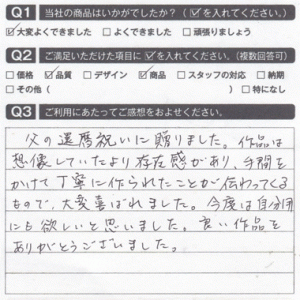 Q1 当社の商品はいかがでしたか？（☑を入れてください。）
☑大変よくできました □よくできました □頑張りましょう
Q2 ご満足いただけた項目に☑を入れてください。（複数回答可）
□価格 ☑品質 □デザイン ☑商品 □スタッフの対応 □納期
□その他（ ）□特になし
Q3 ご利用にあたってご感想をおよせください。
父の還暦祝いに贈りました。作品は
想像していたより存在感があり、手間を
かけて丁寧に作られたことが伝わってくる
もので、大変喜ばれました。今度は自分用
にも欲しいと思いました。良い作品を
ありがとうございました。